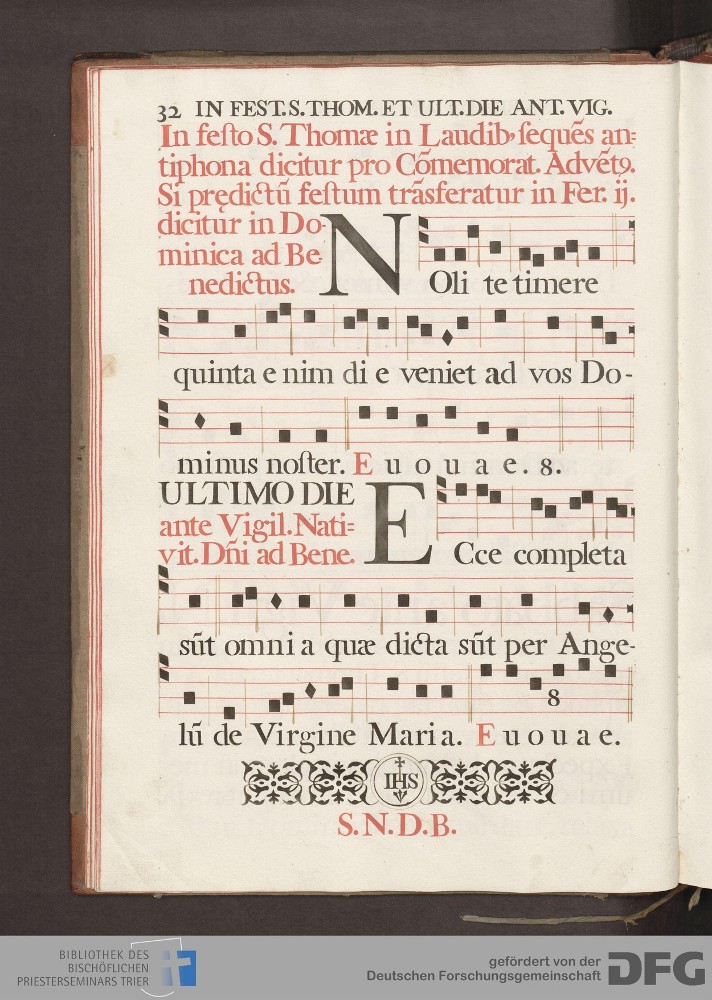 32 IN FEST. S. THOM. ET ULT. DIE ANT. VIG.
In festo S. Thomæ in Laudibꝰ sequẽs an=
tiphona dicitur pro Cõmemorat. Advẽtꝰ.
Si prędictũ festum trãsferatur in Fer. ij.
dicitur in Do-
minica ad Be-
nedictus.
NOli te timere
quinta enim die veniet ad vos Do-
minus noster. E u o u a e. 8.
ULTIMO DIE
ante Vigil. Nati=
vit. Dñi ad Bene.
ECce completa
sũt omnia quæ dicta sũt per Ange-
8
lũ de Virgine Maria. E u o u a e.
IHS
S.N.D.B.
BIBLIOTHEK DES
BISCHÖFLICHEN
PRIESTERSEMINARS TRIER
gefördert von der
Deutschen Forschungsgemeinschaft
DFG